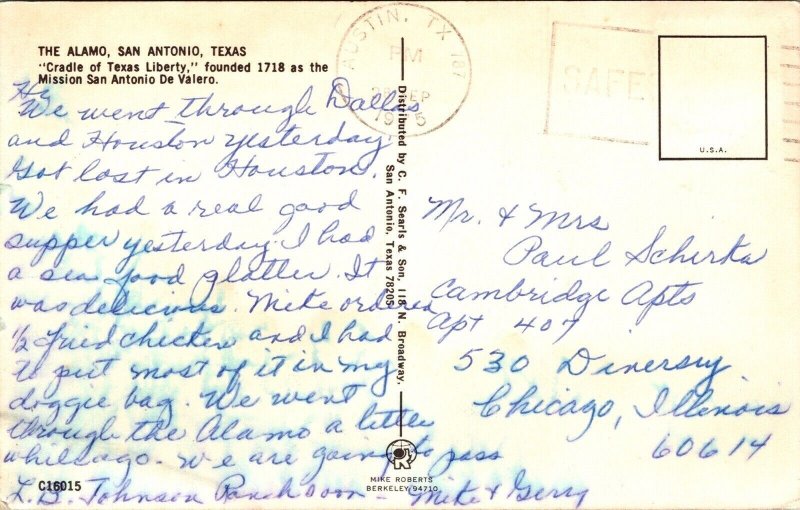 THE ALAMO, SAN ANTONIO, TEXAS
"Cradle of Texas Liberty," founded 1718 as the
Mission San Antonio De Valero.
Hy
We went through Dallas
and Houston yesterday
Got lost in Houston.
We had a real good
supper yesterday. I had
a sea food platter. It
was delicious. Mike ordered
1/2 fried chicken and I had
to put most of it in my
doggie bag. We went
through the Alamo a little
while ago. We are going to pass
L. B. Johnson Ranch soon - Mike & Gerry
C16015
Distributed by C. F. Searls & Son, 118 N. Broadway,
San Antonio, Texas 78205
MIKE ROBERTS
BERKELEY 94710
AUSTIN, TX 787
PM
SEP
U.S.A.
Mr. & Mrs
Paul Schirka
Cambridge Apts
Apt 407
530 Diversey
Chicago, Illinois
60614